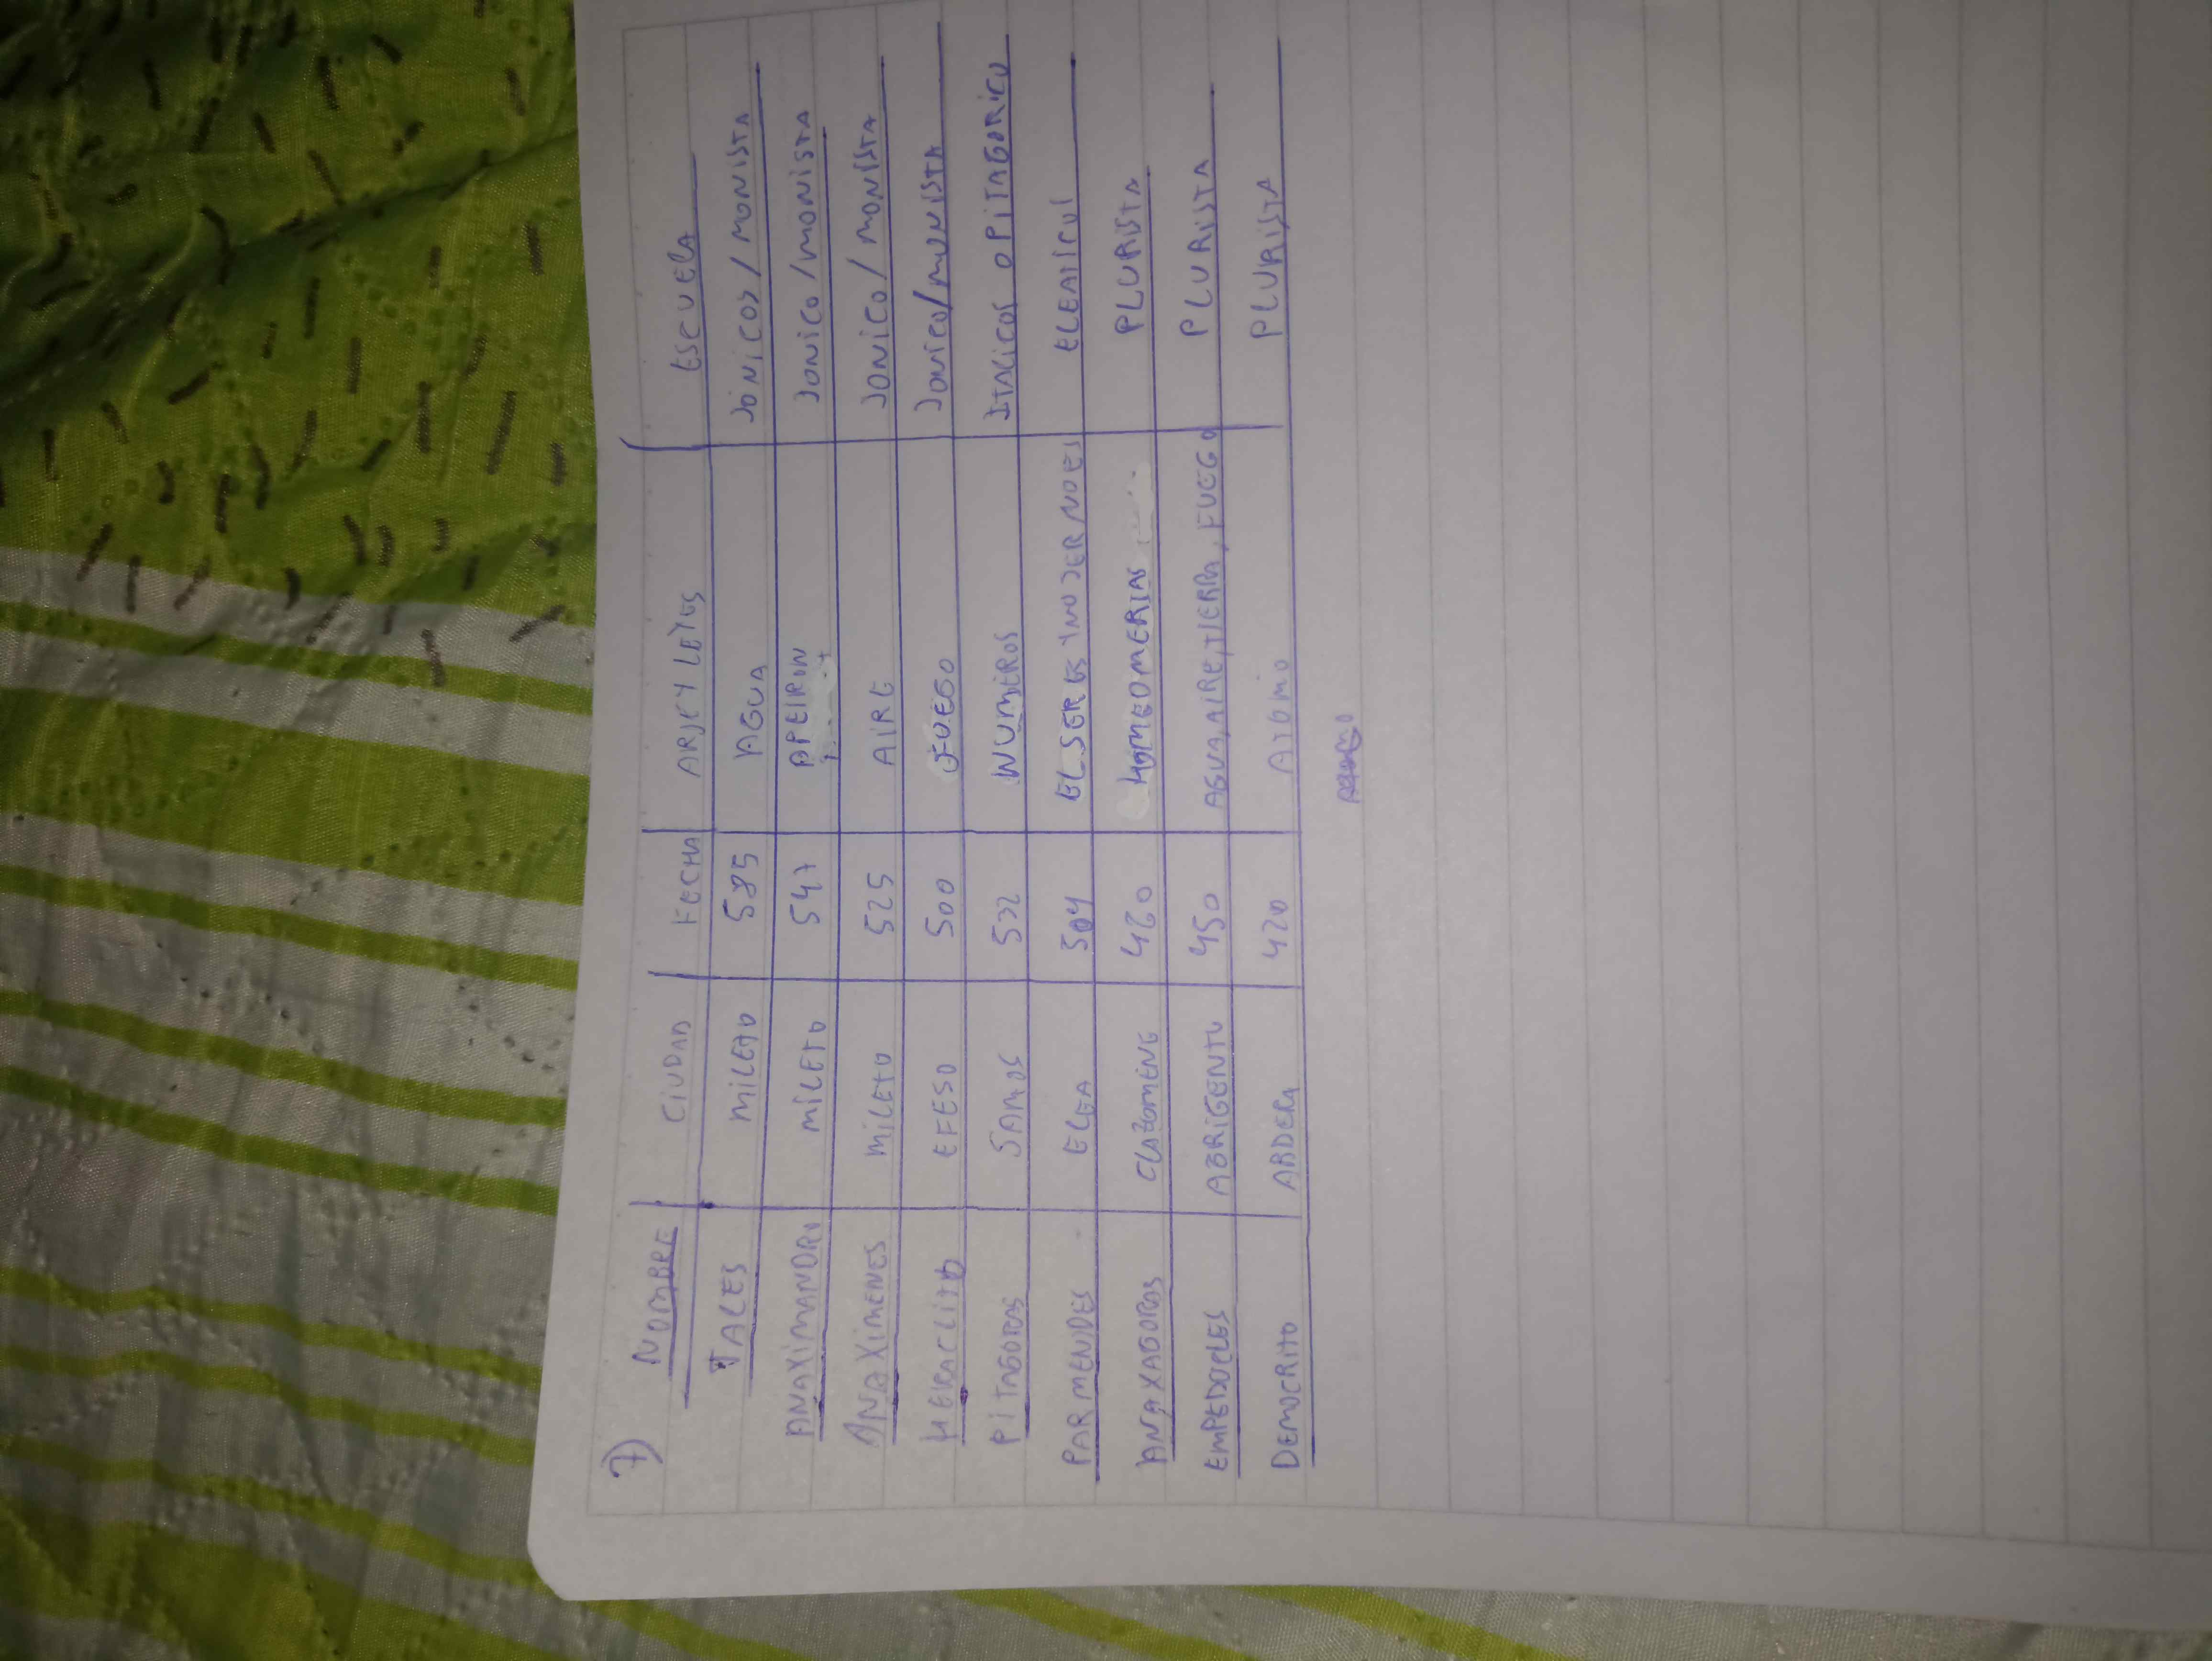 7)
NOMBRE CIUDAD FECHA ARJE Y LEYES ESCUELA
TALES MILETO 585 AGUA JÓNICOS/MONISTA
ANAXIMANDRO MILETO 547 APEIRON JONICO/MONISTA
ANAXIMENES MILETO 525 AIRE JONICO/MONISTA
HERACLITO EFESO 500 FUEGO JONICO/MONISTA
PITAGORAS SAMOS 532 NUMEROS ITALICOS O PITAGORICO
PARMENIDES ELEA 504 EL SER ES Y NO SER NO ES ELEATICOS
ANAXAGORAS CLAZOMENE 460 HOMEOMERIAS PLURISTA
EMPEDOCLES AGRIGENTO 450 AGUA, AIRE, TIERRA, FUEGO PLURISTA
DEMOCRITO ABDERA 420 ATOMO PLURISTA